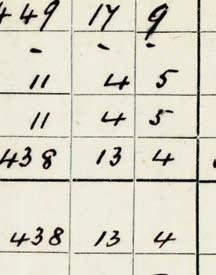 449 17 9
- - -
11 4 5
11 4 5
438 13 4
438 13 4